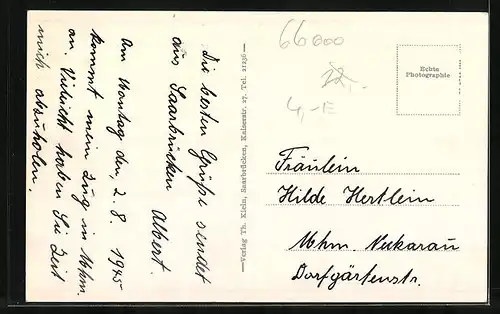 Die besten Grüße sendet
aus Saarbrücken Albert.
Am Montag den, 2. 8. 1945
kommt mein Zug in Mhm.
an. Vieleicht haben Sie Zeit
mich abzuholen.
Verlag Th. Klein, Saarbrücken, Kaiserstr. 27. Tel. 21236
66000
4,-E
Echte
Photographie
Fräulein
Hilde Hertlein
Mhm. Neckarau
Dorfgärtenstr.